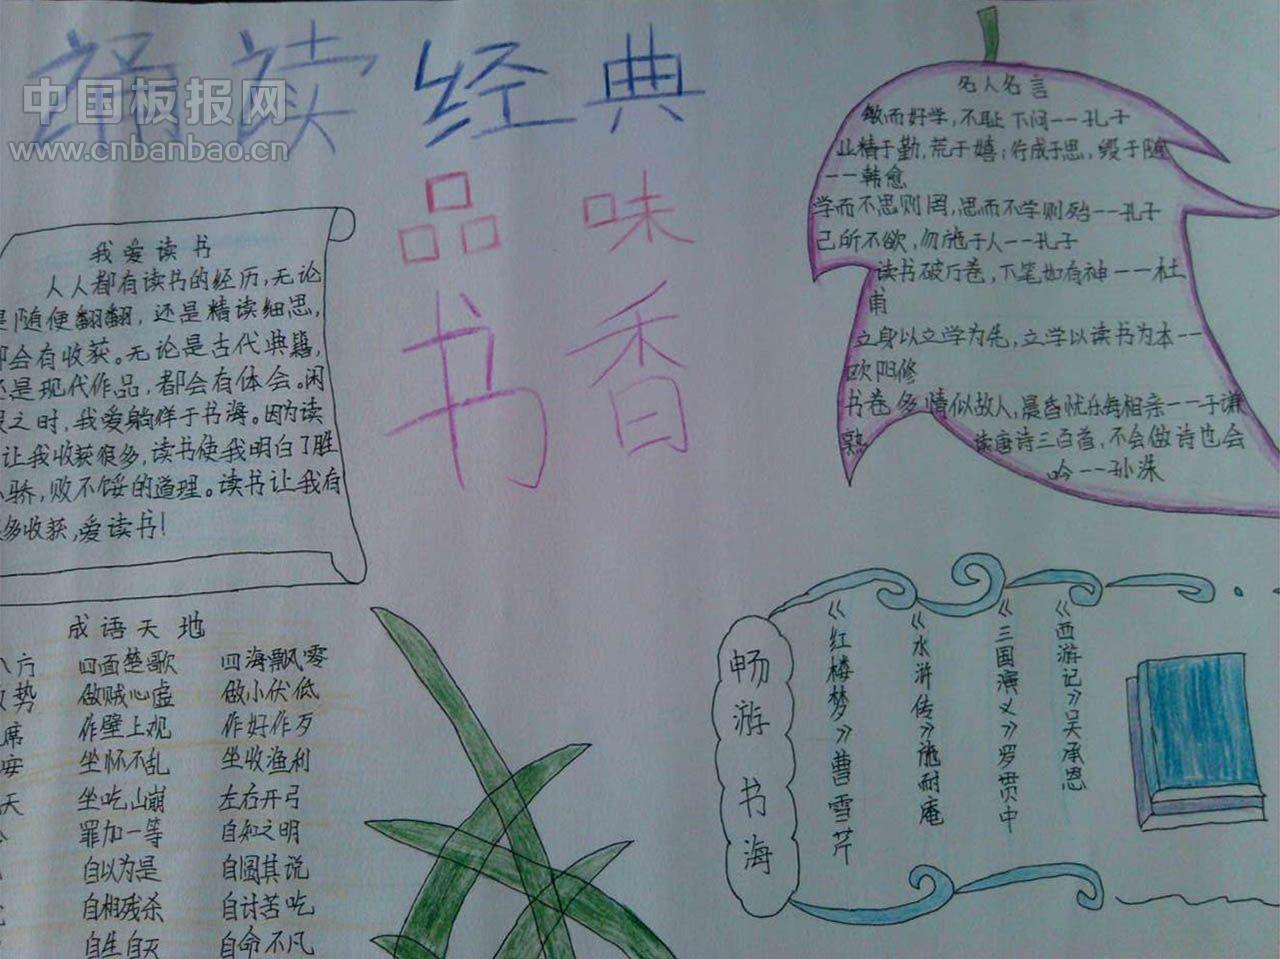 诵读经典
中国板报网
www.cnbanbao.cn
品味
书香
名人名言
敏而好学,不耻下问--孔子
业精于勤,荒于嬉;行成于思,毁于随
--韩愈
学而不思则罔,思而不学则殆--孔子
己所不欲,勿施于人--孔子
读书破万卷,下笔如有神--杜
甫
立身以立学为先,立学以读书为本--
欧阳修
书卷多情似故人,晨昏忧乐每相亲--于谦
熟读唐诗三百首,不会做诗也会
吟--孙洙
我爱读书
人人都有读书的经历,无论
是随便翻翻,还是精读细思,
都会有收获。无论是古代典籍,
还是现代作品,都会有体会。闲
暇之时,我爱躺徉于书海。因为读
让我收获很多,读书使我明白了胜
不骄,败不馁的道理。读书让我有
多收获,爱读书!
成语天地
八方 四面楚歌 四海飘零
势 做贼心虚 做小伏低
席 作壁上观 作好作歹
安 坐怀不乱 坐收渔利
天 坐吃山崩 左右开弓
罪加一等 自知之明
自以为是 自圆其说
自相残杀 自讨苦吃
自生自灭 自命不凡
畅游书海
《红楼梦》曹雪芹
《水浒传》施耐庵
《三国演义》罗贯中
《西游记》吴承恩